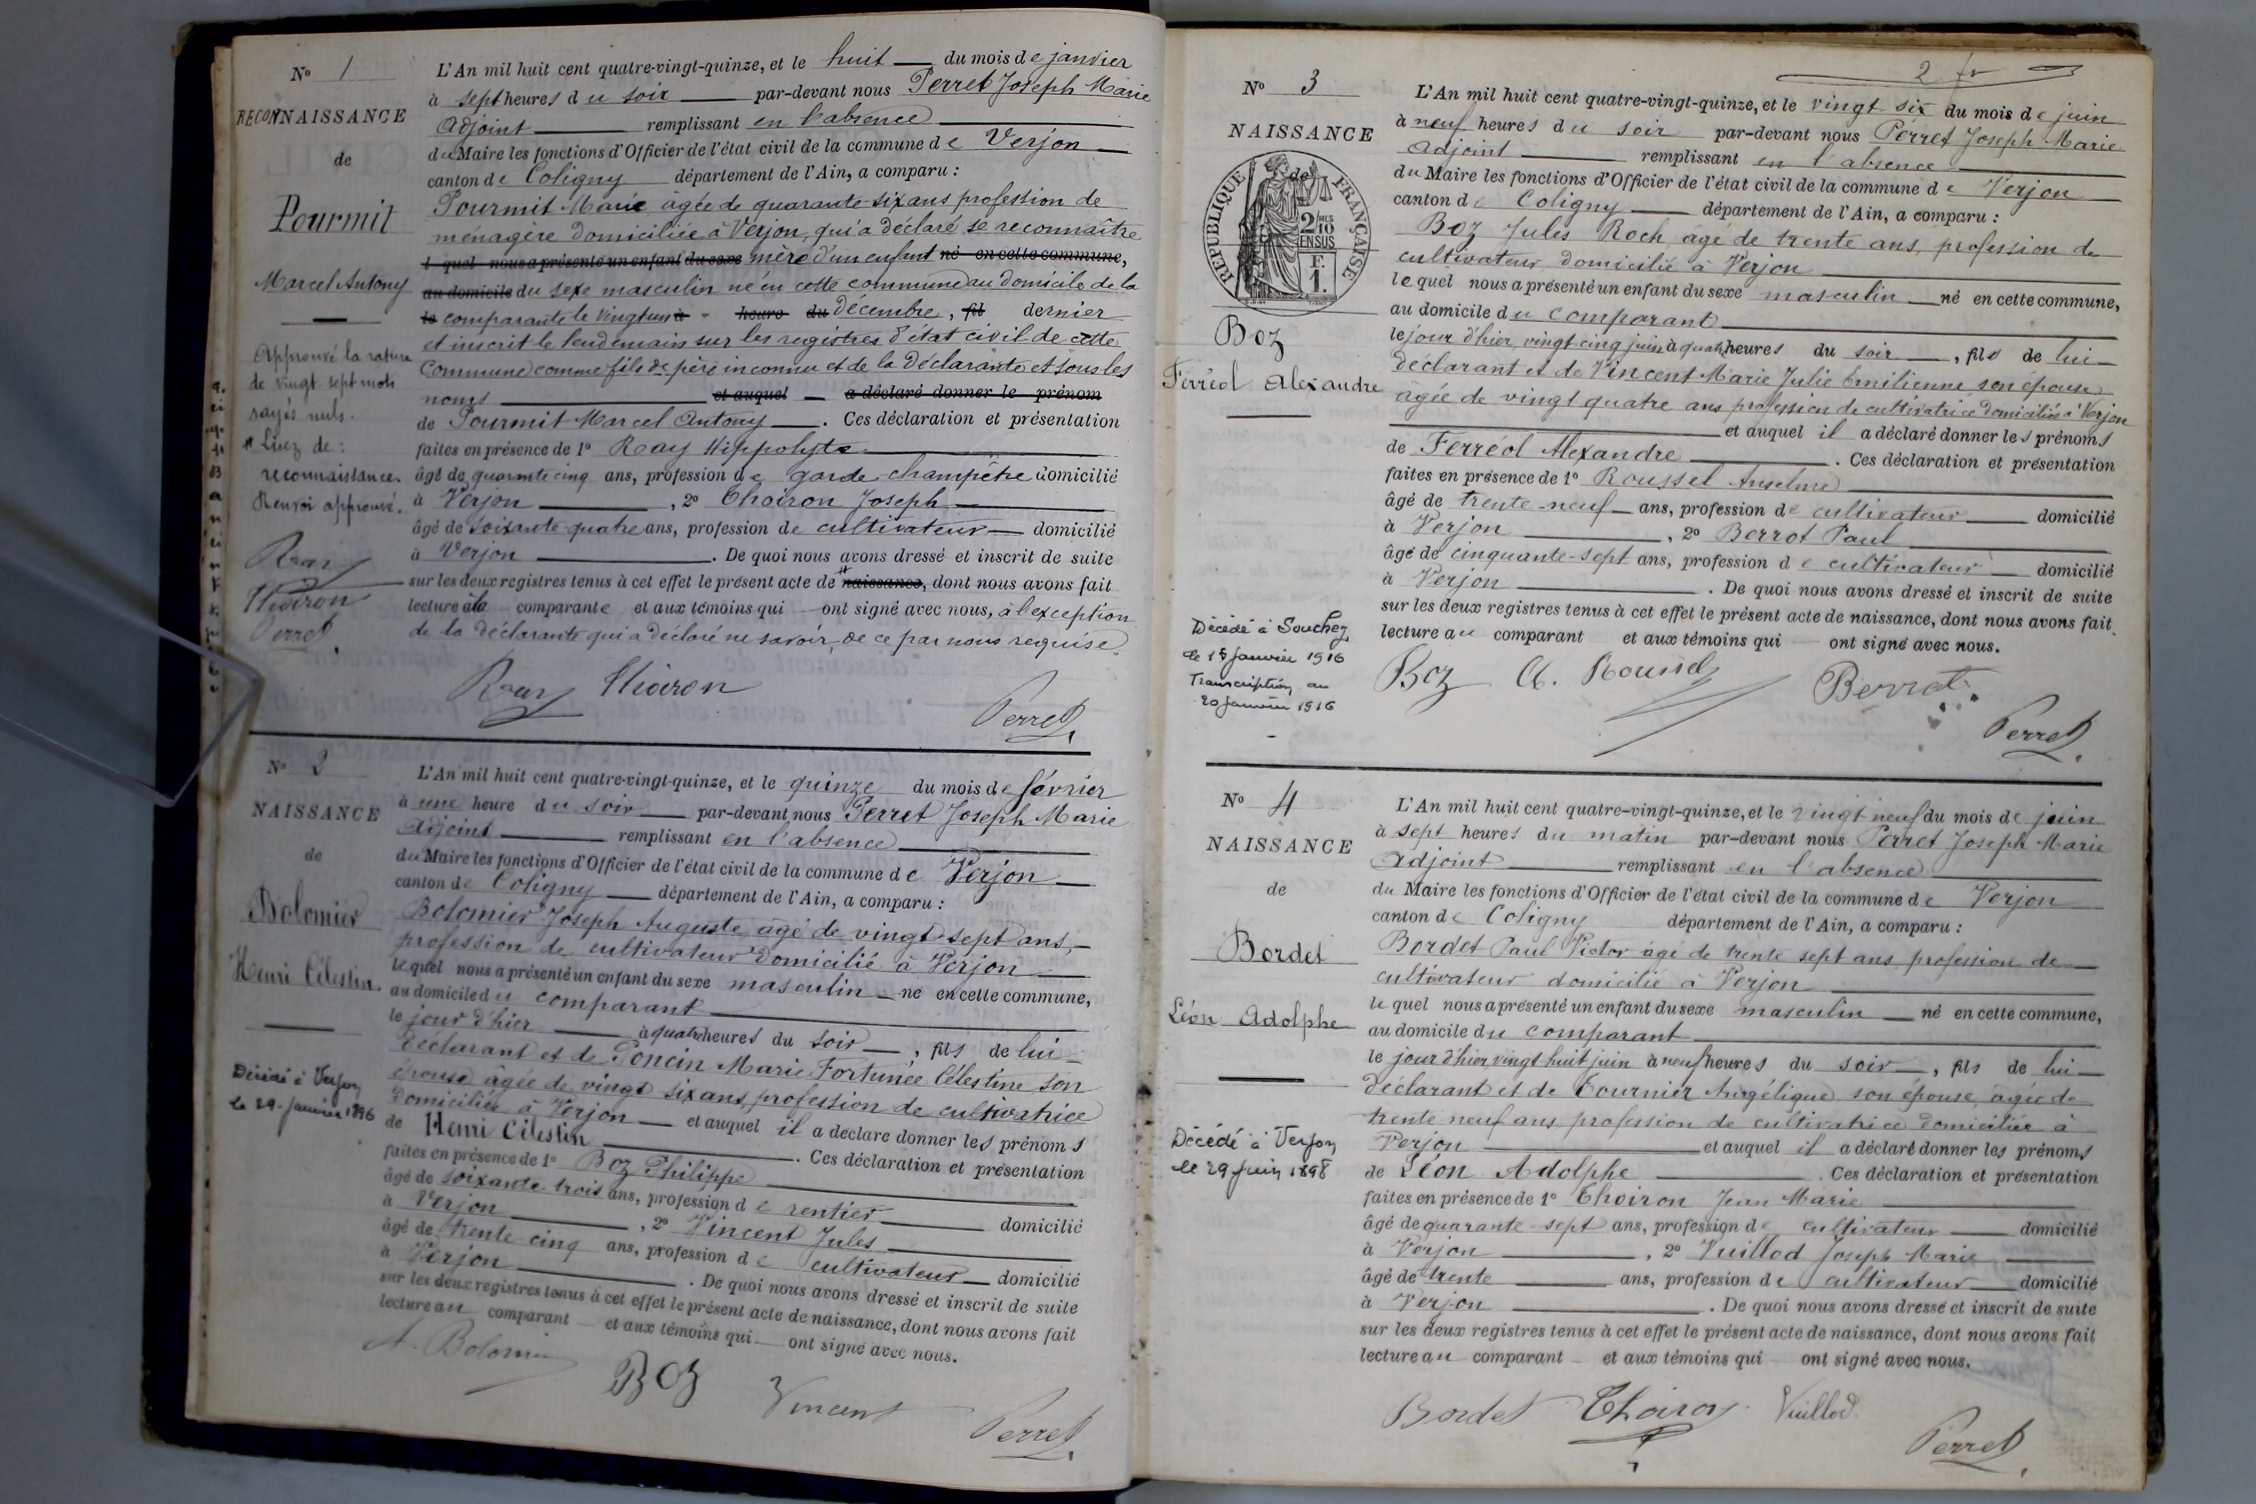 No 1
RECONNAISSANCE
de
Pourmit
Marcel Antony
Approuvé la rature
de vingt sept mots
rayés nuls.
# Lisez de :
reconnaissance.
Renvoi approuvé.
Ray
Thoiron
Perret
L'An mil huit cent quatre-vingt-quinze, et le huit du mois de janvier
à sept heures du soir par-devant nous Perret Joseph Marie
Adjoint remplissant en l'absence
du Maire les fonctions d'Officier de l'état civil de la commune de Verjon
canton de Coligny département de l'Ain, a comparu :
Pourmit Marie âgée de quarante-six ans profession de
ménagère domiciliée à Verjon, qui a déclaré se reconnaître
l quel nous a présenté un enfant du sexe mère d'un enfant né en cette commune,
au domicile du sexe masculin né en cette commune au domicile de la
le comparante le vingt un à heure du décembre, fil dernier
et inscrit le lendemain sur les registres d'état civil de cette
Commune comme fils de père inconnu et de la déclarante et sous les
noms et auquel a déclaré donner le prénom
de Pourmit Marcel Antony . Ces déclaration et présentation
faites en présence de 1o Ray Hippolyte
âgé de quarante cinq ans, profession de garde champêtre domicilié
à Verjon , 2o Thoiron Joseph
âgé de soixante quatre ans, profession de cultivateur domicilié
à Verjon . De quoi nous avons dressé et inscrit de suite
sur les deux registres tenus à cet effet le présent acte de # naissance, dont nous avons fait
lecture à la comparante et aux témoins qui ont signé avec nous, à l'exception
de la déclarante qui a déclaré ne savoir, de ce par nous requise.
Ray Thoiron
Perret
No 2
NAISSANCE
de
Bolomier
Henri Célestin.
Décédé à Verjon
le 29 Janvier 1896
L'An mil huit cent quatre-vingt-quinze, et le quinze du mois de février
à une heure du soir par-devant nous Perret Joseph Marie
Adjoint remplissant en l'absence
du Maire les fonctions d'Officier de l'état civil de la commune de Verjon
canton de Coligny département de l'Ain, a comparu :
Bolomier Joseph Auguste âgé de vingt sept ans,
profession de cultivateur domicilié à Verjon
lequel nous a présenté un enfant du sexe masculin né en cette commune,
au domicile du comparant
le jour d'hier à quatre heures du soir , fils de lui
déclarant et de Poncin Marie Fortunée Célestine son
épouse âgée de vingt six ans, profession de cultivatrice
domiciliée à Verjon et auquel il a déclaré donner les prénoms
de Henri Célestin . Ces déclaration et présentation
faites en présence de 1o Boz Philippe
âgé de soixante trois ans, profession de rentier domicilié
à Verjon , 2o Vincent Jules
âgé de trente cinq ans, profession de cultivateur domicilié
à Verjon . De quoi nous avons dressé et inscrit de suite
sur les deux registres tenus à cet effet le présent acte de naissance, dont nous avons fait
lecture au comparant et aux témoins qui ont signé avec nous.
A. Bolomier
Boz
Vincent
Perret
2 fo
No 3
NAISSANCE
de
RÉPUBLIQUE FRANÇAISE
2/10
EN SUS
F.
1.
Boz
Ferréol Alexandre
Décédé à Souchez
le 15 Janvier 1916
Transcription au
20 Janvier 1916
L'An mil huit cent quatre-vingt-quinze, et le vingt six du mois de juin
à neuf heures du soir par-devant nous Perret Joseph Marie
Adjoint remplissant en l'absence
du Maire les fonctions d'Officier de l'état civil de la commune de Verjon
canton de Coligny département de l'Ain, a comparu :
Boz Jules Roch, âgé de trente ans, profession de
cultivateur domicilié à Verjon
lequel nous a présenté un enfant du sexe masculin né en cette commune,
au domicile du comparant
le jour d'hier, vingt cinq juin à quatre heures du soir , fils de lui
déclarant et de Vincent Marie Julie Emilienne son épouse
âgée de vingt quatre ans profession de cultivatrice domiciliée à Verjon
et auquel il a déclaré donner les prénoms
de Ferréol Alexandre . Ces déclaration et présentation
faites en présence de 1o Roussel Anselme
âgé de trente-neuf ans, profession de cultivateur domicilié
à Verjon , 2o Berrot Paul
âgé de cinquante-sept ans, profession de cultivateur domicilié
à Verjon . De quoi nous avons dressé et inscrit de suite
sur les deux registres tenus à cet effet le présent acte de naissance, dont nous avons fait
lecture au comparant et aux témoins qui ont signé avec nous.
Boz A. Roussel Berrot
Perret
No 4
NAISSANCE
de
Bordet
Léon Adolphe
Décédé à Verjon
le 29 Juin 1898
L'An mil huit cent quatre-vingt-quinze, et le vingt neuf du mois de juin
à sept heures du matin par-devant nous Perret Joseph Marie
Adjoint remplissant en l'absence
du Maire les fonctions d'Officier de l'état civil de la commune de Verjon
canton de Coligny département de l'Ain, a comparu :
Bordet Paul Victor âgé de trente sept ans, profession de
cultivateur domicilié à Verjon
lequel nous a présenté un enfant du sexe masculin né en cette commune,
au domicile du comparant
le jour d'hier vingt huit juin à neuf heures du soir , fils de lui
déclarant et de Tournier Angélique son épouse, âgée de
trente neuf ans profession de cultivatrice domiciliée à
Verjon et auquel il a déclaré donner les prénoms
de Léon Adolphe . Ces déclaration et présentation
faites en présence de 1o Thoiron Jean Marie
âgé de quarante-sept ans, profession de cultivateur domicilié
à Verjon , 2o Vuillod Joseph Marie
âgé de trente ans, profession de cultivateur domicilié
à Verjon . De quoi nous avons dressé et inscrit de suite
sur les deux registres tenus à cet effet le présent acte de naissance, dont nous avons fait
lecture au comparant et aux témoins qui ont signé avec nous.
Bordet Thoiron Vuillod
Perret